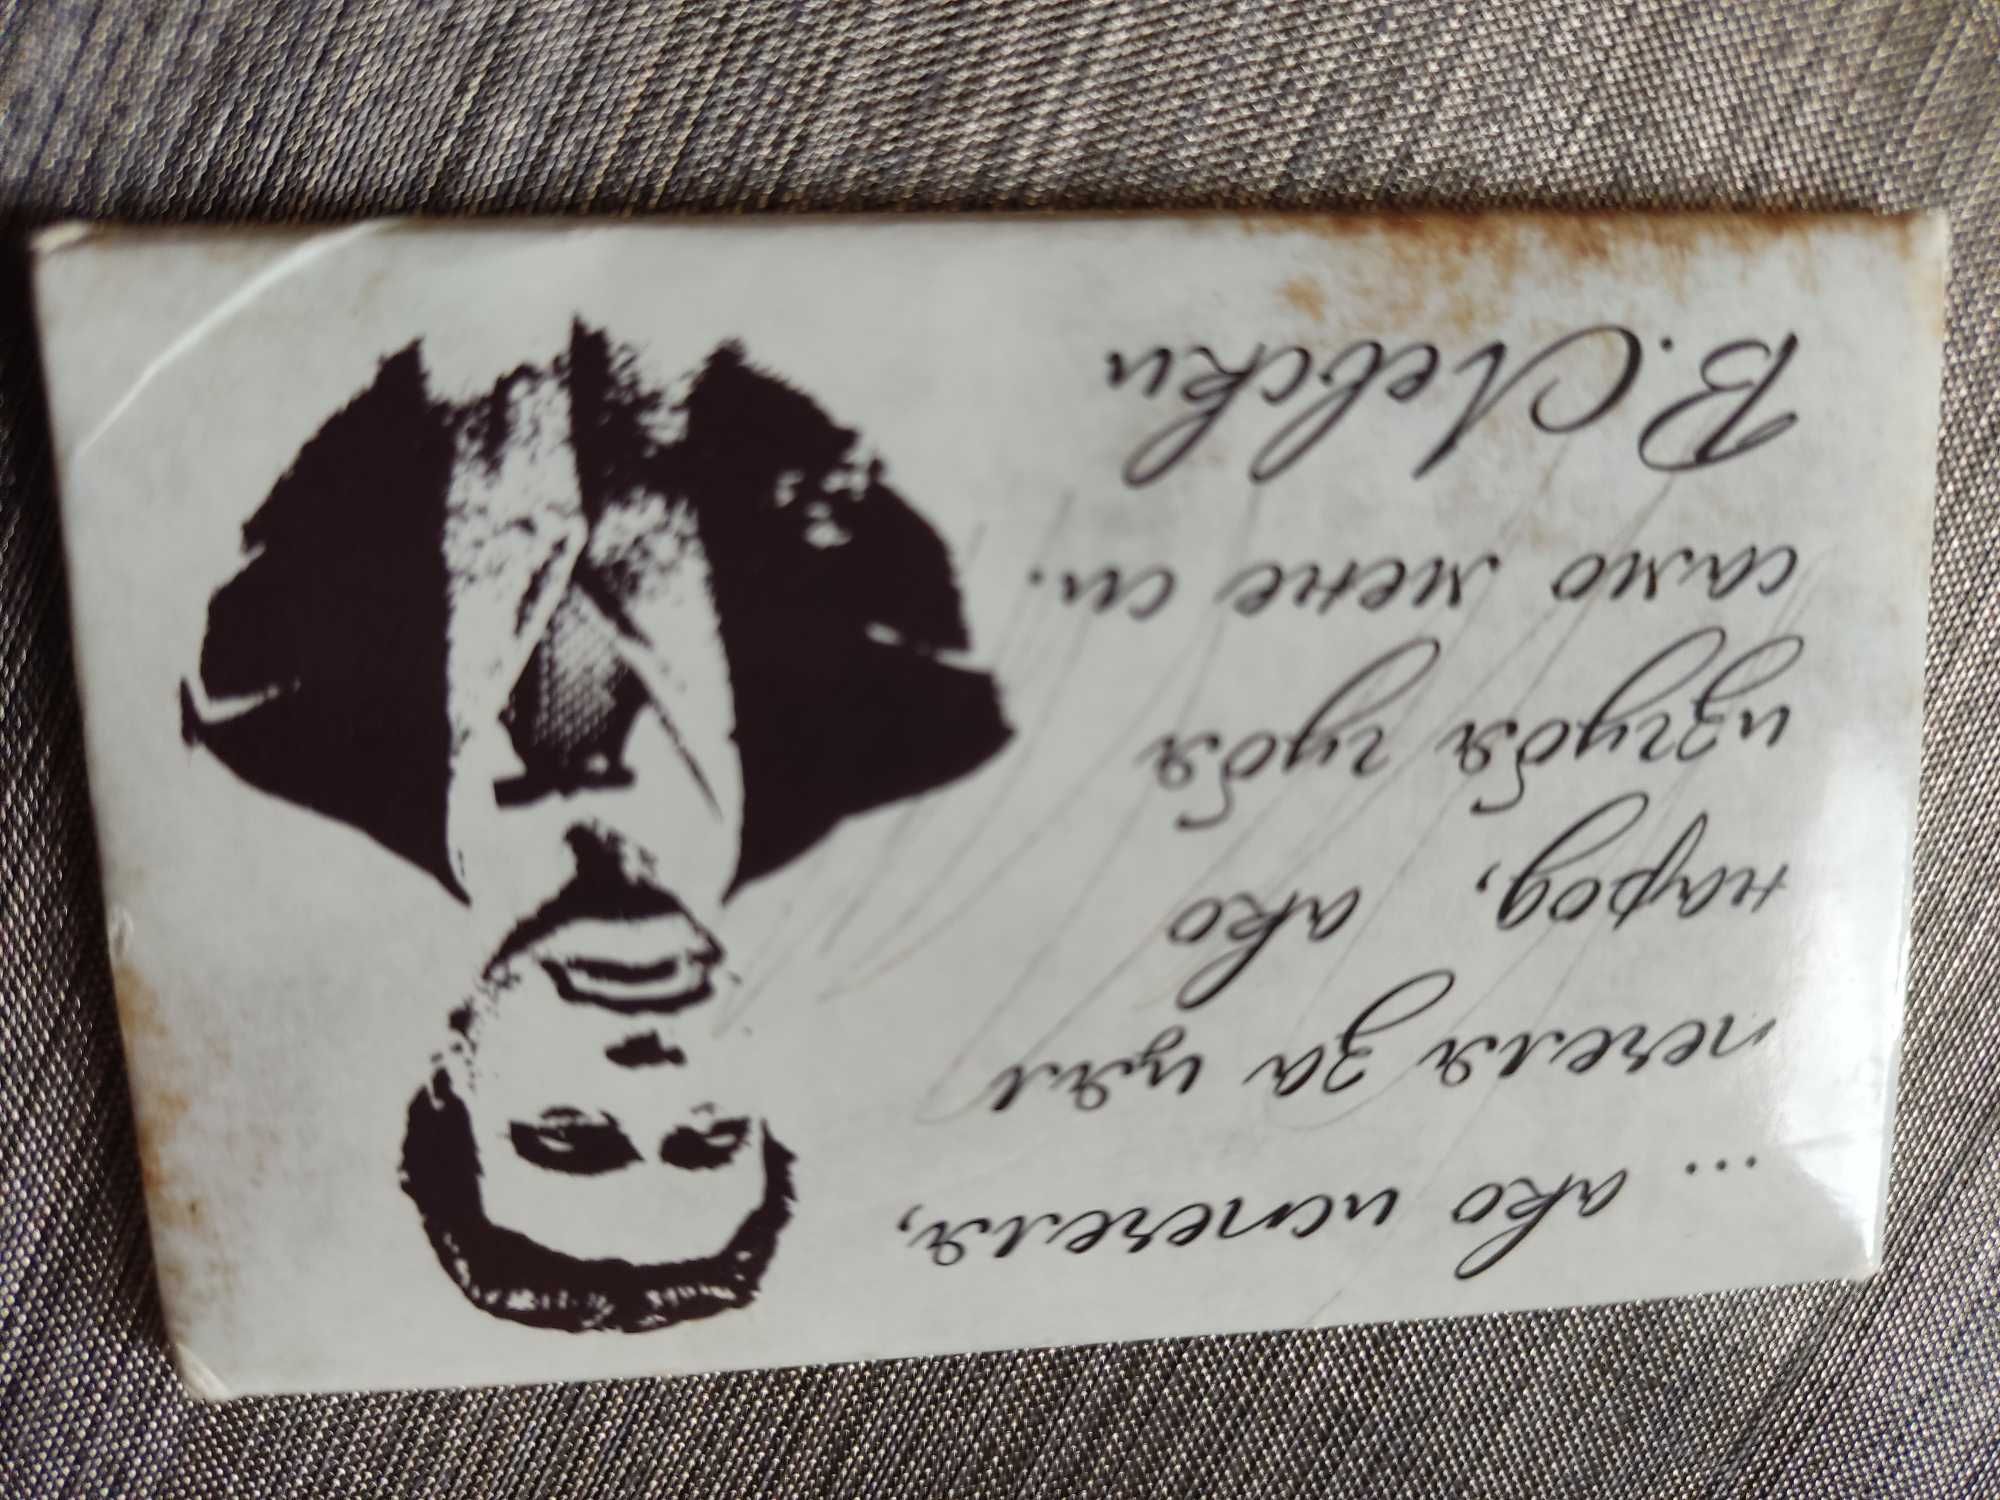 ... ако испечеля,
печеля за цял
народ, ако
изгубя губя
само мене си.
В. Левски